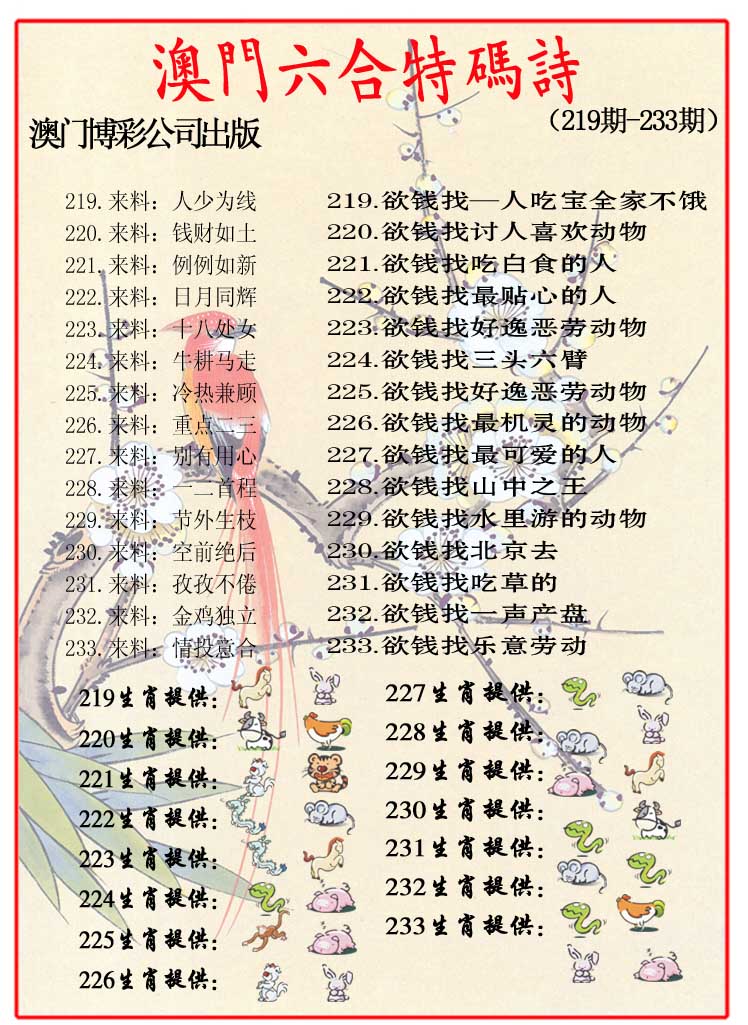 澳門六合特碼詩
澳门博彩公司出版
（219期-233期）
219.来料：人少为线
219.欲钱找—人吃宝全家不饿
220.来料：钱财如土
220.欲钱找讨人喜欢动物
221.来料：例例如新
221.欲钱找吃白食的人
222.来料：日月同辉
222.欲钱找最贴心的人
223.来料：十八处女
223.欲钱找好逸恶劳动物
224.来料：牛耕马走
224.欲钱找三头六臂
225.来料：冷热兼顾
225.欲钱找好逸恶劳动物
226.来料：重点二三
226.欲钱找最机灵的动物
227.来料：别有用心
227.欲钱找最可爱的人
228.来料：一二首程
228.欲钱找山中之王
229.来料：节外生枝
229.欲钱找水里游的动物
230.来料：空前绝后
230.欲钱找北京去
231.来料：孜孜不倦
231.欲钱找吃草的
232.来料：金鸡独立
232.欲钱找一声产盘
233.来料：情投意合
233.欲钱找乐意劳动
219生肖提供：
220生肖提供：
221生肖提供：
222生肖提供：
223生肖提供：
224生肖提供：
225生肖提供：
226生肖提供：
227生肖提供：
228生肖提供：
229生肖提供：
230生肖提供：
231生肖提供：
232生肖提供：
233生肖提供：